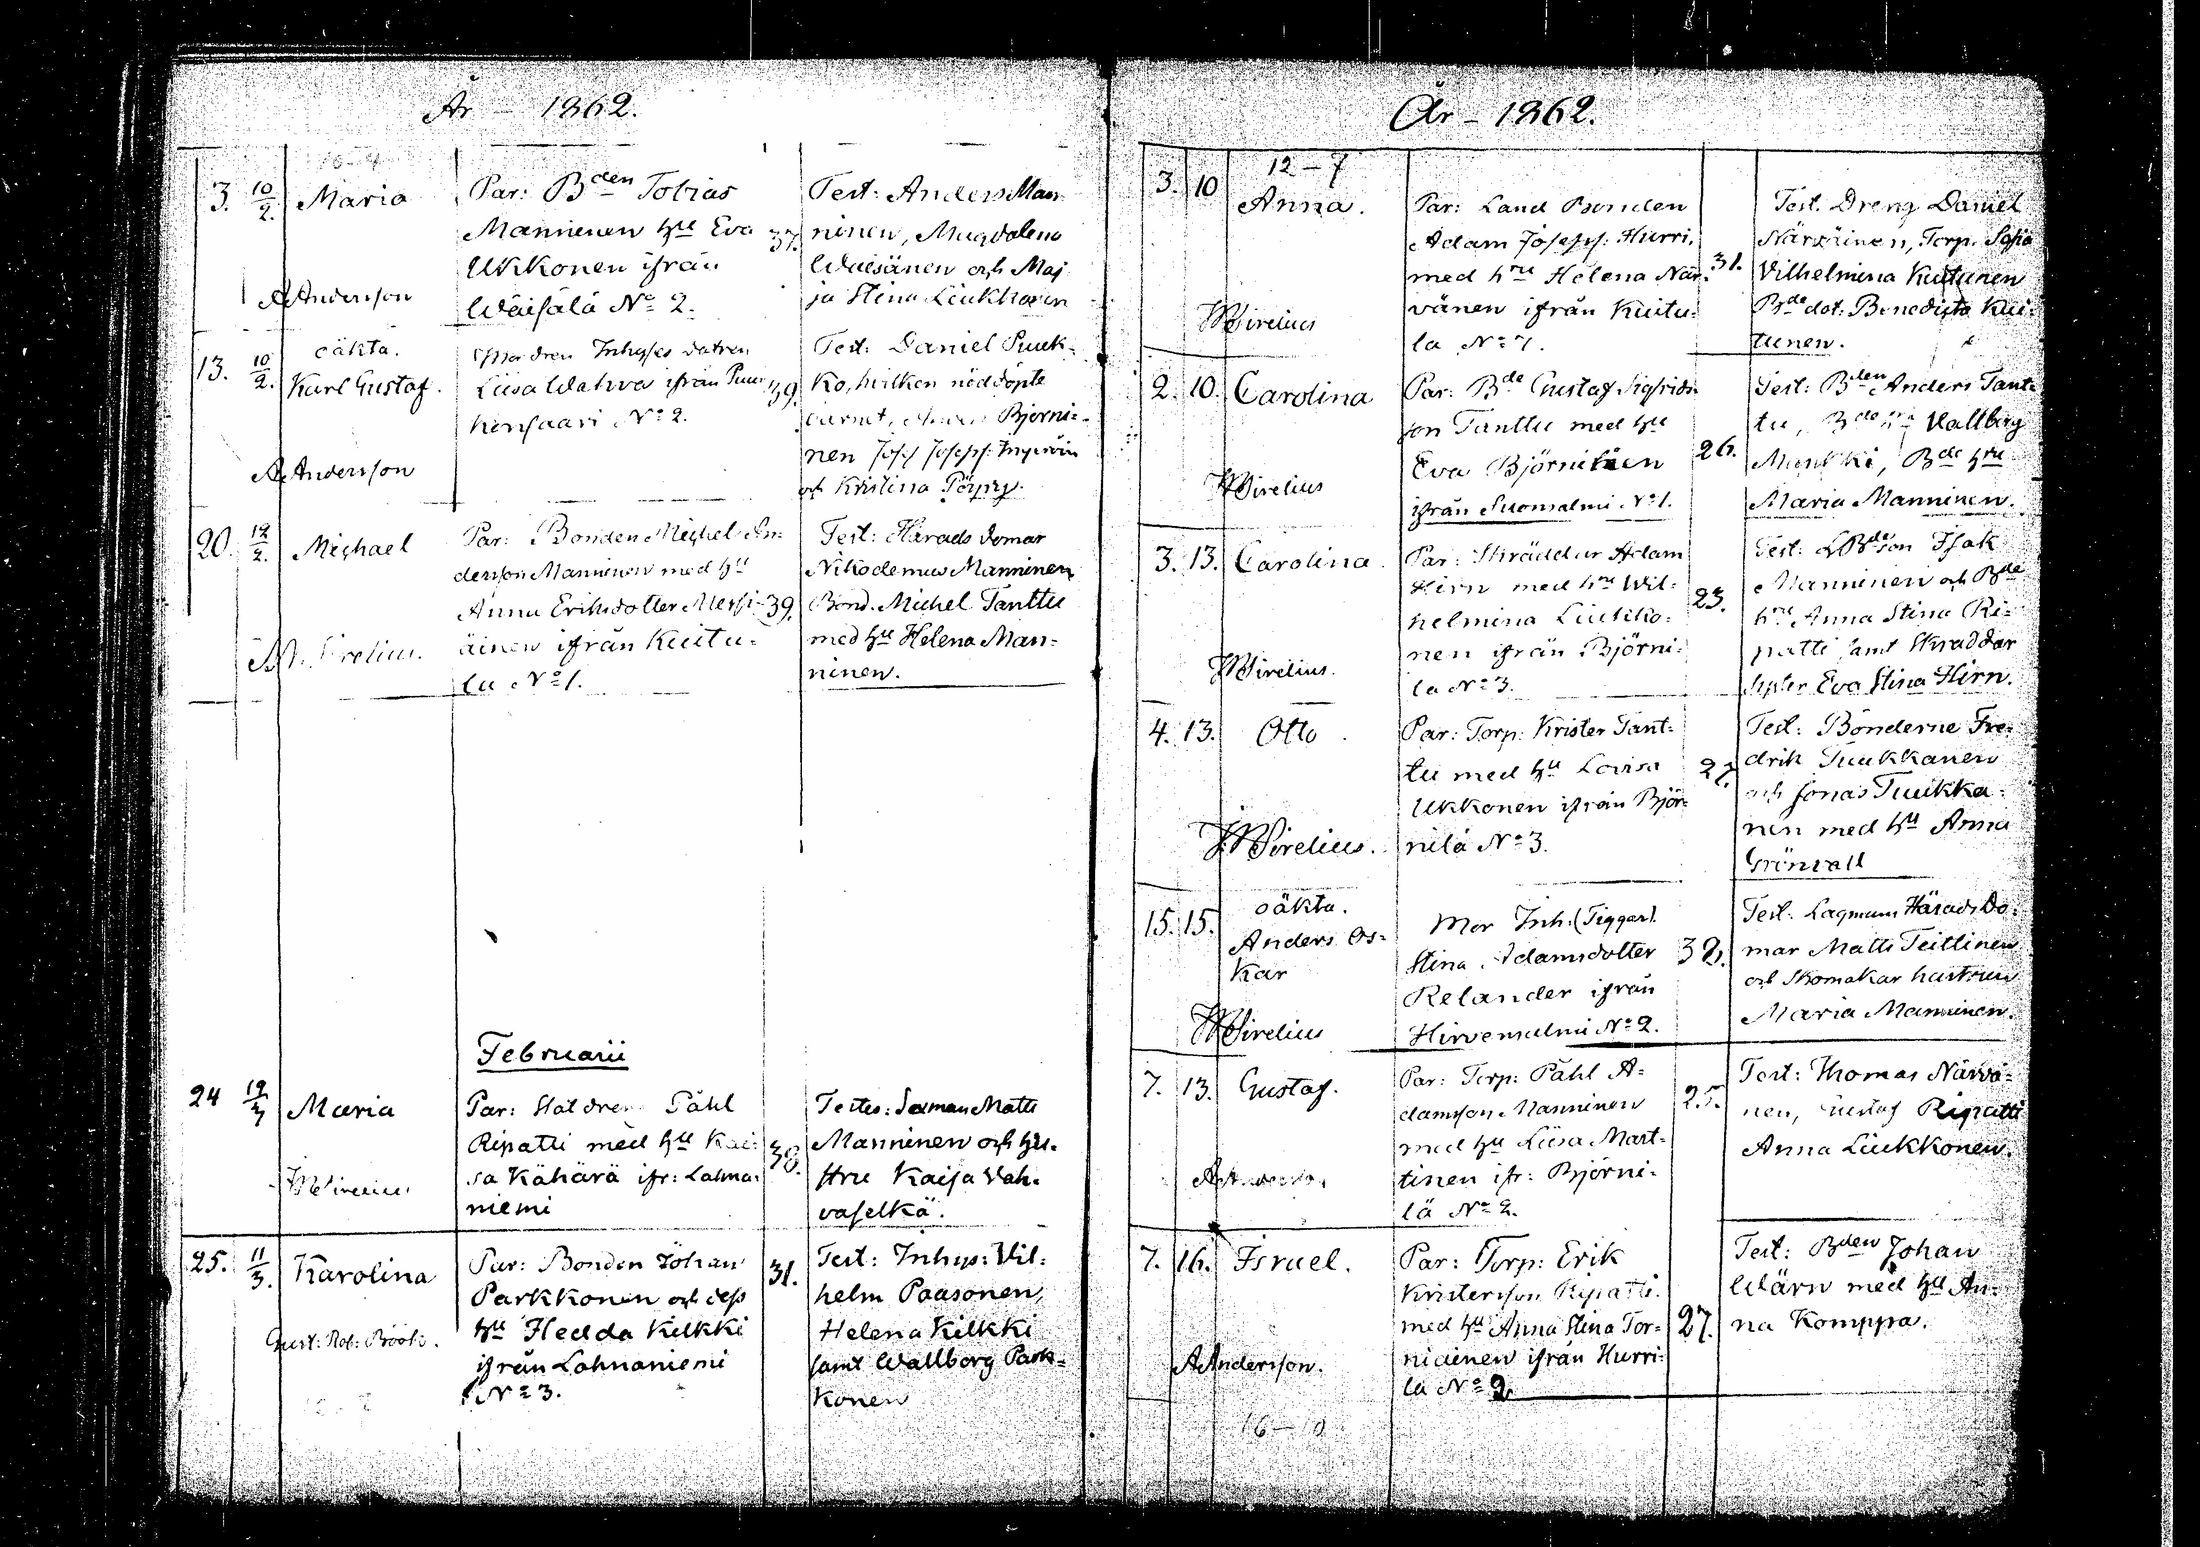 År - 1862.
3. 10/2. Maria
Par: Bden Tobias
Manninen hu Eva
Ukkonen ifrån
Wäisälä No 2.
37.
Test: Anders Man
ninen, Magdalena
Waisänen och Maj
ja Stina Liukkonen
A Andersson
13. 10/2. oäkta.
Karl Gustaf.
Modren Inhyses dotren
Liisa Wahva ifrån Puu
konsaari No 2.
39.
Test: Daniel Puuk-
ko, hvilken nöddöpte
barnet, Björni-
nen Josef Josefss:
och Kristina Pöyry.
A Andersson
20. 12/2. Michael
Par: Bonden Michel An-
dersson Manninen med hu
Anna Eriksdotter Messi-
äinen ifrån Kuitu-
la No 1.
39.
Test: Härads domar
Nikodemus Manninen,
Bond. Michel Tanttu
med hu Helena Man-
ninen.
Februarii
24 12/3 Maria
Par: Påhl
Ripatti med hu Kai-
sa Kähärä ifr: Lahna-
niemi
38.
Testes: Sexman Matts
Manninen och hu-
stru Kaisa Vah-
vaselkä.
25. 11/3. Karolina
Par: Bonden Johan
Parkkonen och dess
hu Hedda Kilkki
ifrån Lahnaniemi
No 3.
31.
Test: Inhys: Vil-
helm Paasonen,
Helena Kilkki
samt Wallborg Park-
konen
Gust: Rob: Böök.
År - 1862.
12 - 7
3. 10 Anna.
Par: Land Bonden
Adam Josefss: Hurri,
med hru Helena När-
vänen ifrån Kuitu-
la No 1.
31.
Test. Dreng Daniel
Närväinen, Torp. Sofia
Vilhelmina Kuitunen
Bde dot: Benedikta Kui-
tunen.
Wirelius
2. 10. Carolina
Par: Bde Gustaf Sigfrids
son Tanttu med hu
Eva Björninen
ifrån Suonsalmi No 1.
26.
Test: Bden Anders Tant-
tu, Bde hru Vallborg
Mankki, Bde hru
Maria Manninen.
Wirelius
3. 13. Carolina.
Par: Skräddar Adam
Hirn med hru Wil-
helmina Liukko-
nen ifrån Björni-
la No 3.
23.
Test: LBdeson Isak
Manninen och Bde
hru Anna Stina Ri-
patti samt Skräddar
Eva Stina Hirn.
Wirelius.
4. 13. Otto.
Par: Torp: Krister Tant-
tu med hu Lovisa
Ukkonen ifrån Björ-
nilä No 3.
27.
Test: Bönderne Fre-
drik Tuukkanen
och Jonas Tuukka-
nen med hu Anna
Grönvall
Wirelius.
15. 15. oäkta.
Anders Os-
kar
Mor Inh: (Tiggar).
Stina Adamsdotter
Relander ifrån
Hirvensalmi No 2.
32.
Test. Lagman Härads Do-
mar Matts Teittinen
och Skomakar hustrun
Maria Manninen.
Wirelius
7. 13. Gustaf.
Par: Torp: Påhl A-
damsson Manninen
med hu Liisa Mart-
tinen ifr: Björni-
lä No 2.
25.
Test: Thomas Närvä-
nen, Gustaf Ripatti
Anna Liukkonen.
7. 16. Israel.
Par: Torp: Erik
Kristersson Ripatti.
med hu Anna Stina Tor-
niainen ifrån Hurri-
la No 2.
27.
Test: Bden Johan
Wärn med hu An-
na Komppa.
A Andersson.
16 - 10